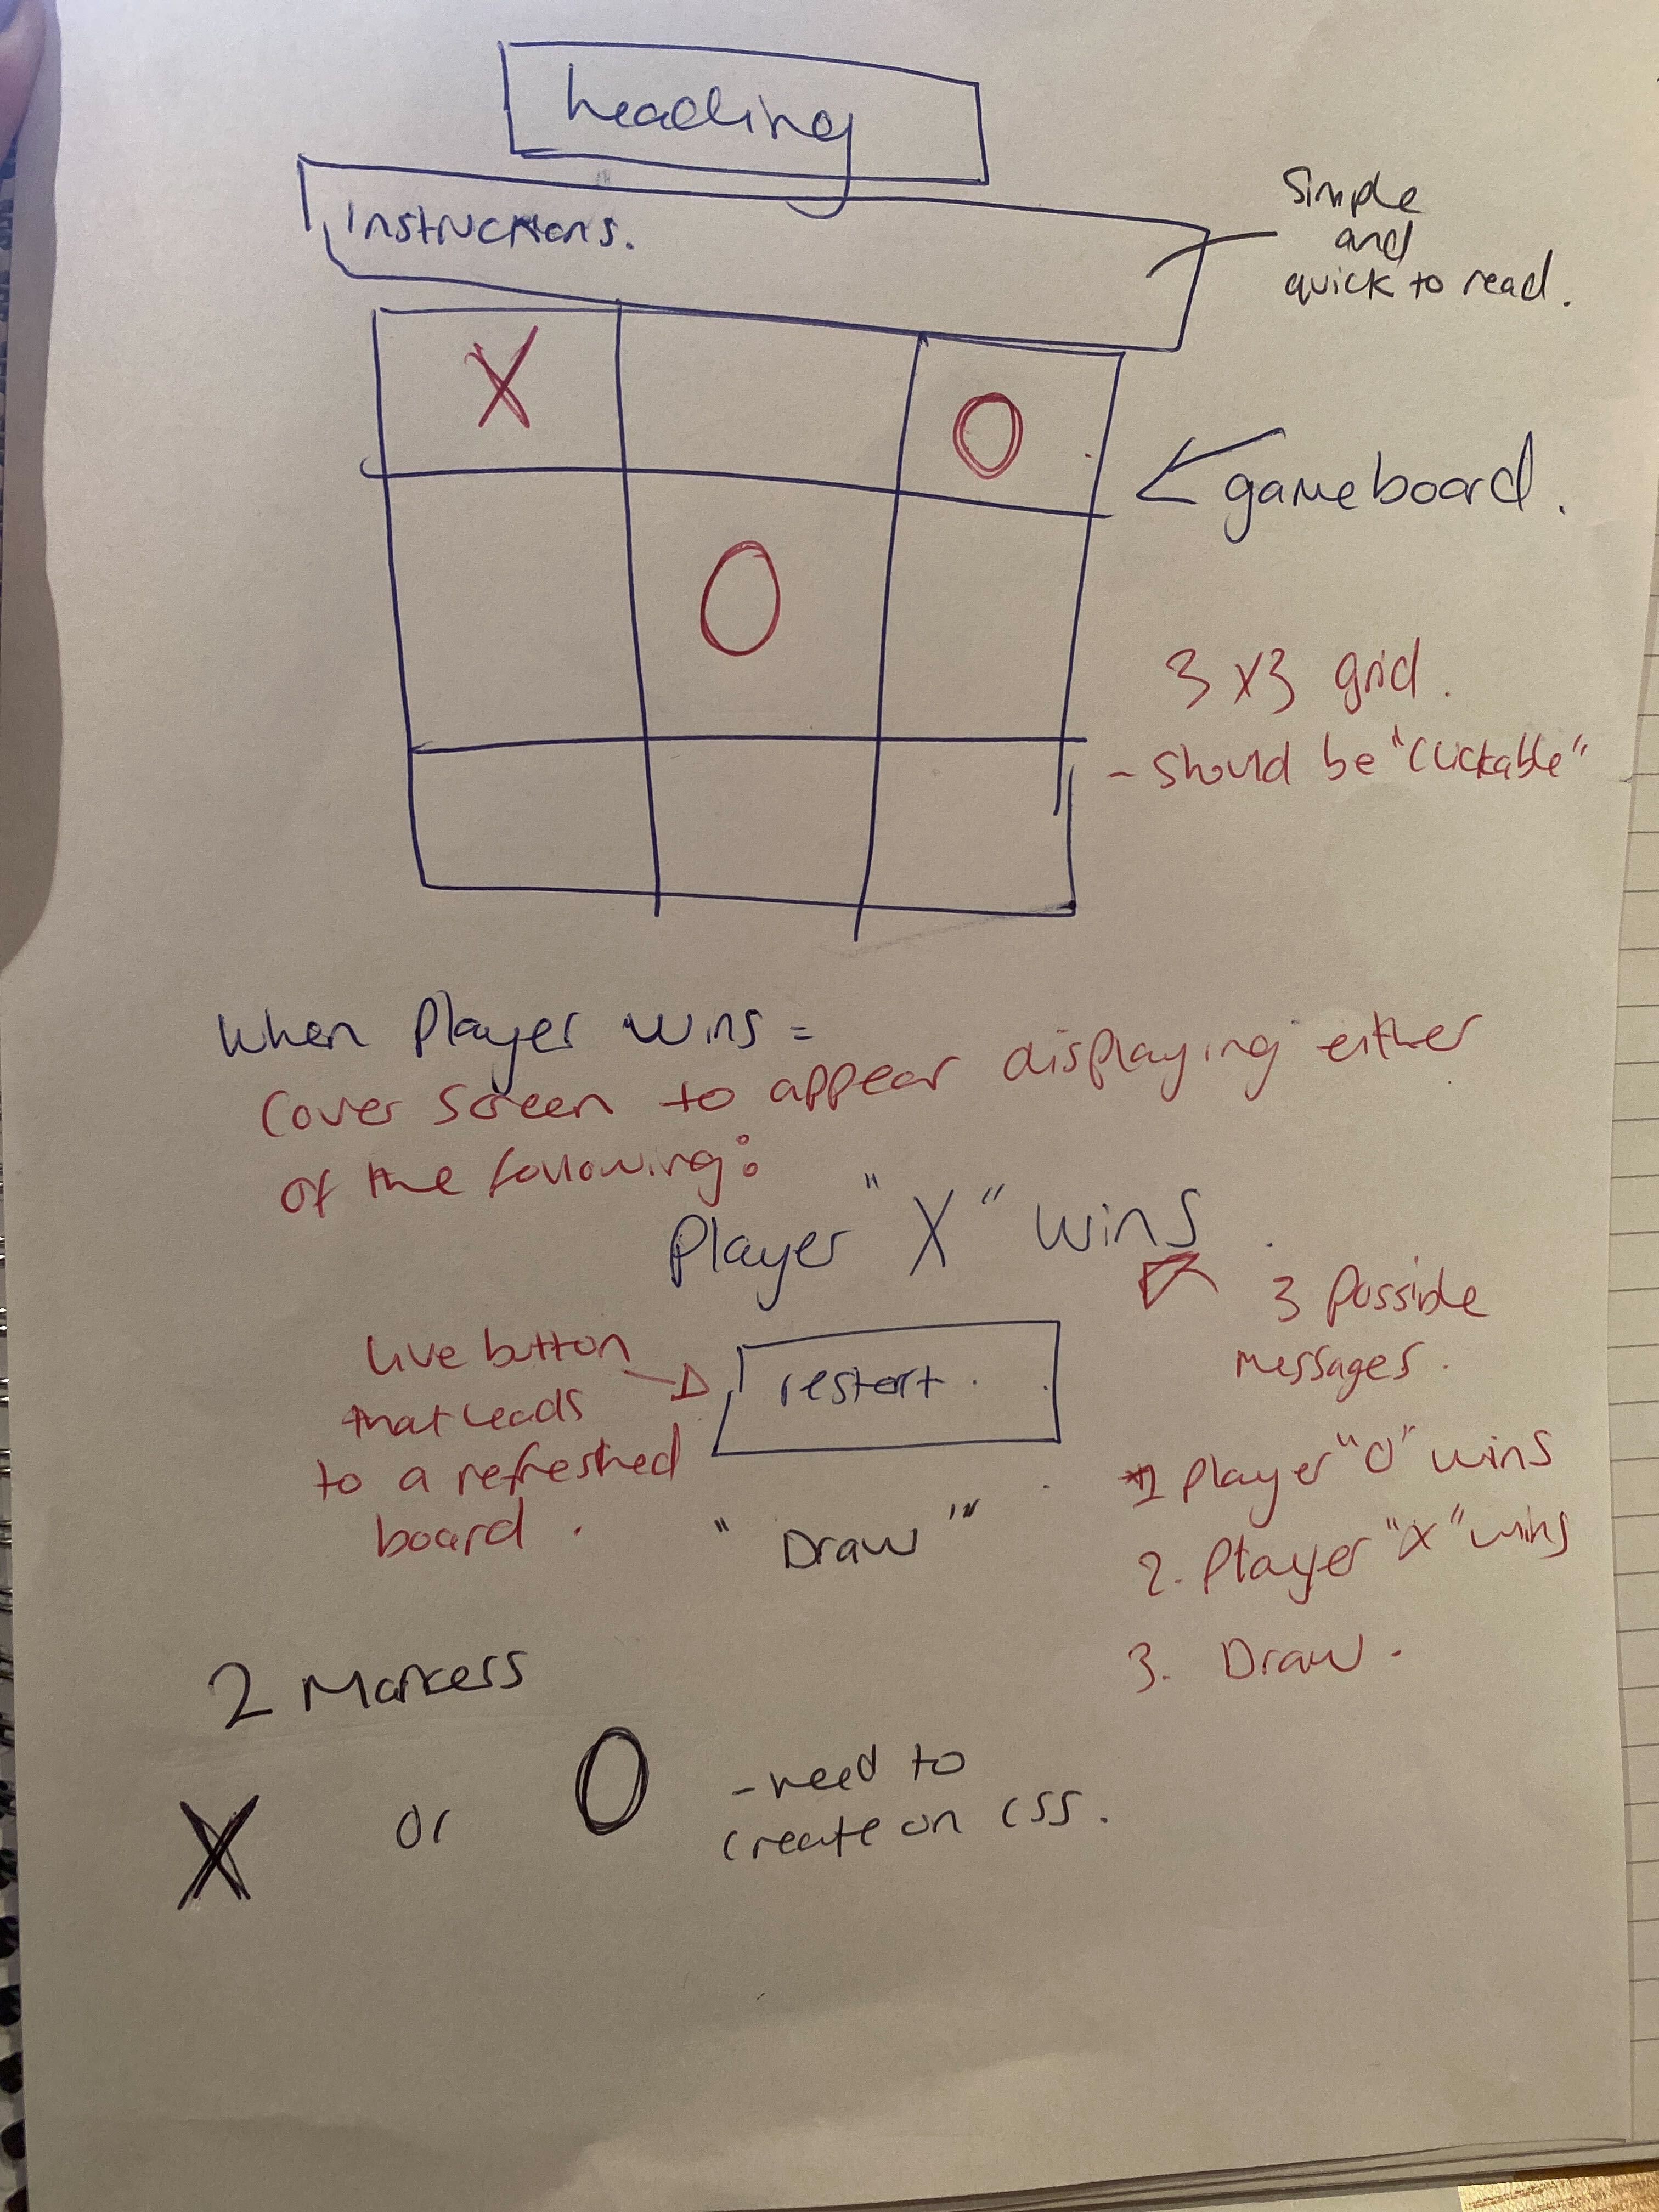 heading
Instructions.
Simple
and
quick to read.
X
O
gameboard.
O
3 x 3 grid.
- should be "clickable"
When Player wins =
Cover screen to appear displaying either
of the following:
Player "X" wins.
3 possible
messages.
live button
that leads
to a refreshed
board.
restart.
"Draw"
1 Player "O" wins
2. Player "X" wins
3. Draw.
2 Markers
X or O
- need to
create on css.